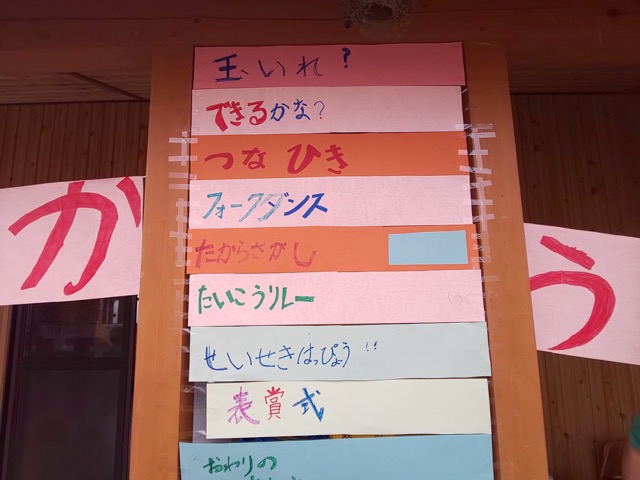 玉いれ?
できるかな?
つなひき
フォークダンス
たからさがし
たいこうリレー
せいせきはっぴょう!!
表賞式
おわりの
か
う